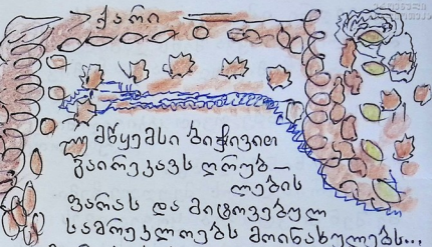 ქარი
მწყემსი ბიჭივით
გაირეკავს ღრუბ-
ლების
ფარას და მიტოვებულ
სამრეკლოებს მოინახულებს...